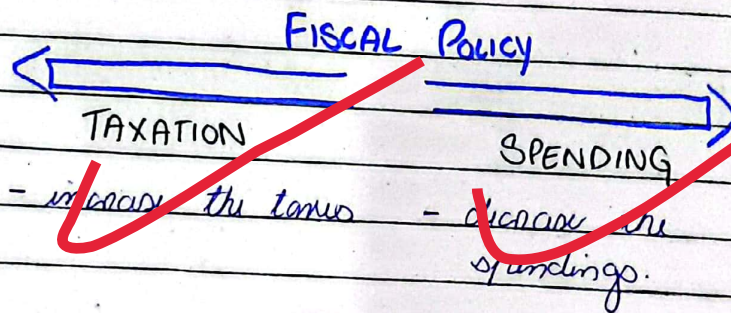 FISCAL POLICY
TAXATION
SPENDING
- increase the taxes - decrease the
spendings.